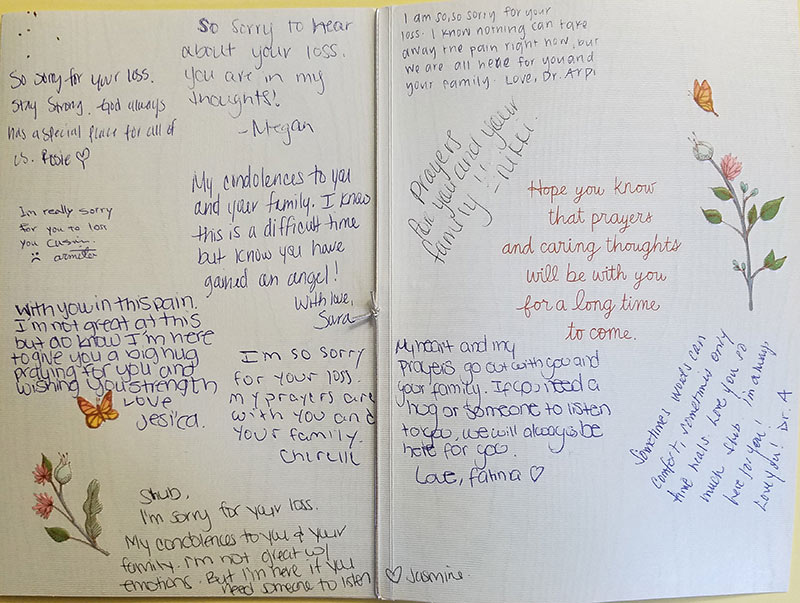 So Sorry to hear
about your loss.
You are in my
thoughts!
-Megan
So sorry for your loss.
Stay Strong. God always
has a special place for all of
us. Rosie ♡
My condolences to you
and your family. I know
this is a difficult time
but know you have
gained an angel!
With love,
Sara
Im really sorry
for you to loss
you Cusin.
With you in this pain.
I'm not great at this
but do know I'm here
to give you a big hug
praying for you and
wishing you strength
Love
Jesica.
I'm so sorry
for your loss.
my prayers are
with you and
your family.
Shub,
I'm sorry for your loss.
My condolences to you & your
family. I'm not great w/
emotions. But I'm here if you
need someone to listen
♡ Jasmine
I am so, so sorry for your
loss. I know nothing can take
away the pain right now, but
we are all here for you and
your family. Love, Dr. Arpi
Prayers
for you and your
family!!
-Nikki
Hope you know
that prayers
and caring thoughts
will be with you
for a long time
to come.
My heart and my
prayers go out with you and
your family. If you need a
hug or someone to listen
to you, we will always be
here for you.
Love, Fatima ♡
Sometimes words can
comfort, sometimes only
time heals. Love you so
much Shub. I'm always
here for you!
Love you! Dr. A